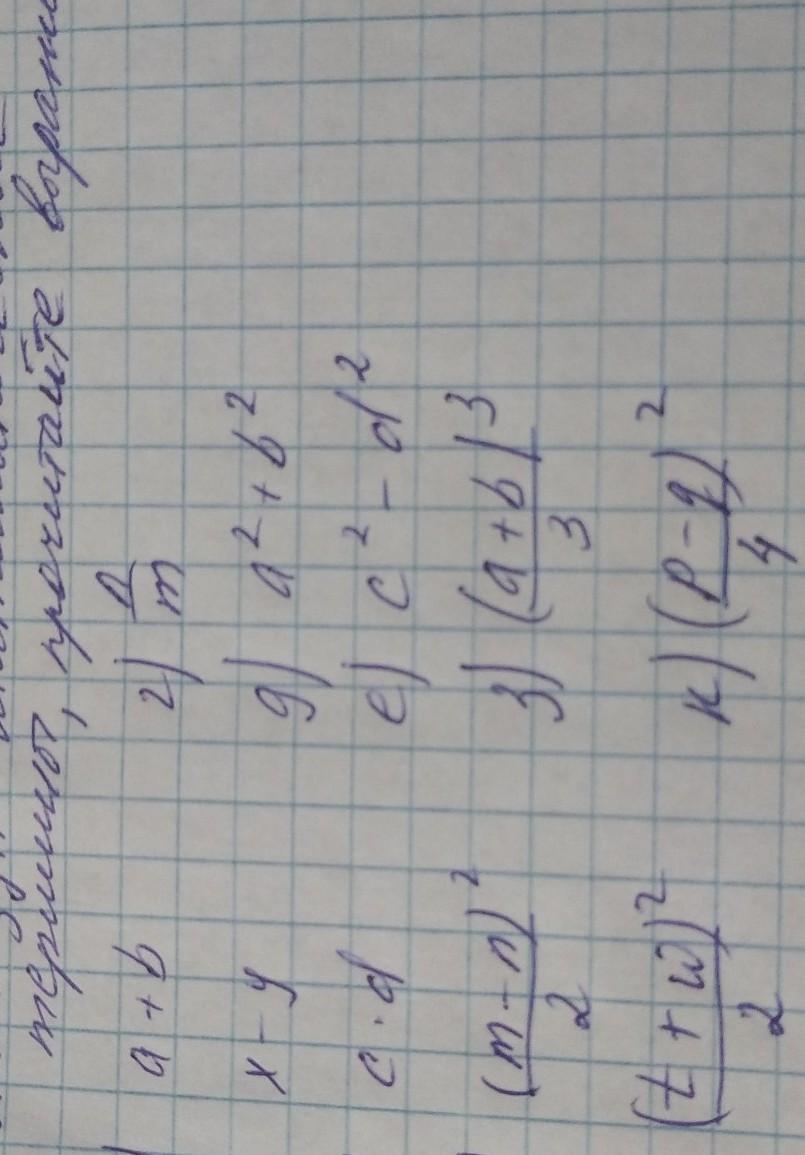 термины, прочитайте выраже
a + b г) n/m
x - y д) a² + b²
c · d е) c² - d²
(m - n)²/2 з) (a + b)³/3
(t + w)²/2 к) (p - q)²/4